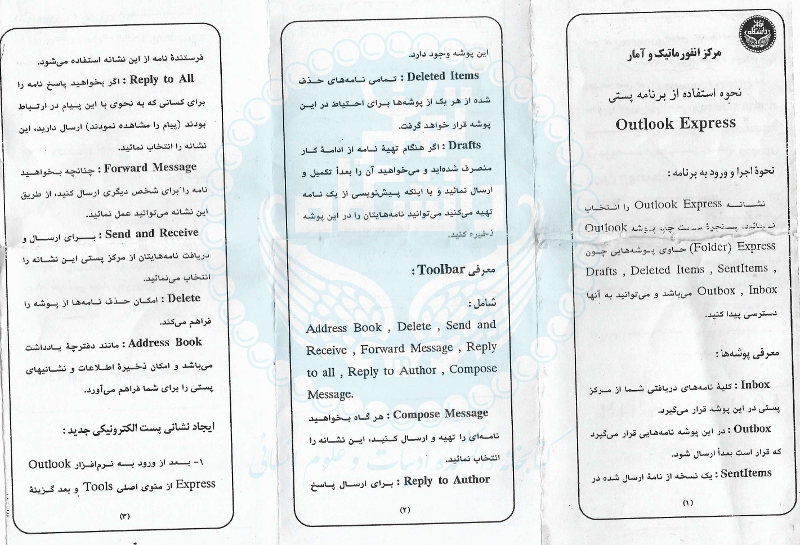 مرکز انفورماتیک و آمار
نحوه استفاده از برنامه پستی
Outlook Express
نحوهٔ اجرا و ورود به برنامه :
نشانه Outlook Express را انتخاب
نمائید، پنجرهٔ سمت چپ پوشه Outlook
Express (Folder) حاوی پوشه‌هایی چون
Drafts , Deleted Items , SentItems ,
Outbox , Inbox می‌باشد و می‌توانید به آنها
دسترسی پیدا کنید.
معرفی پوشه‌ها :
Inbox : کلیهٔ نامه‌های دریافتی شما از مرکز
پستی در این پوشه قرار می‌گیرد.
Outbox : در این پوشه نامه‌هایی قرار می‌گیرد
که قرار است بعداً ارسال شود.
SentItems : یک نسخه از نامهٔ ارسال شده در
(۱)
این پوشه وجود دارد.
Deleted Items : تمامی نامه‌های حذف
شده از هر یک از پوشه‌ها برای احتیاط در این
پوشه قرار خواهد گرفت.
Drafts : اگر هنگام تهیهٔ نامه از ادامهٔ کار
منصرف شده‌اید و می‌خواهید آن را بعداً تکمیل و
ارسال نمائید و یا اینکه پیش‌نویسی از یک نامه
تهیه می‌کنید می‌توانید نامه‌هایتان را در این پوشه
ذخیره کنید.
معرفی Toolbar :
شامل :
Address Book , Delete , Send and
Receive , Forward Message , Reply
to all , Reply to Author , Compose
Message.
Compose Message : هر گاه بخواهید
نامه‌ای را تهیه و ارسال کنید، این نشانه را
انتخاب نمائید.
Reply to Author : برای ارسال پاسخ
(۲)
فرستندهٔ نامه از این نشانه استفاده می‌شود.
Reply to All : اگر بخواهید پاسخ نامه را
برای کسانی که به نحوی با این پیام در ارتباط
بودند (پیام را مشاهده نمودند) ارسال دارید، این
نشانه را انتخاب نمائید.
Forward Message : چنانچه بخواهید
نامه را برای شخص دیگری ارسال کنید، از طریق
این نشانه می‌توانید عمل نمائید.
Send and Receive : برای ارسال و
دریافت نامه‌هایتان از مرکز پستی این نشانه را
انتخاب می‌نمائید.
Delete : امکان حذف نامه‌ها از پوشه را
فراهم می‌کند.
Address Book : مانند دفترچهٔ یادداشت
می‌باشد و امکان ذخیرهٔ اطلاعات و نشانیهای
پستی را برای شما فراهم می‌آورد.
ایجاد نشانی پست الکترونیکی جدید :
۱- بعد از ورود به نرم‌افزار Outlook
Express از منوی اصلی Tools و بعد گزینهٔ
(۳)